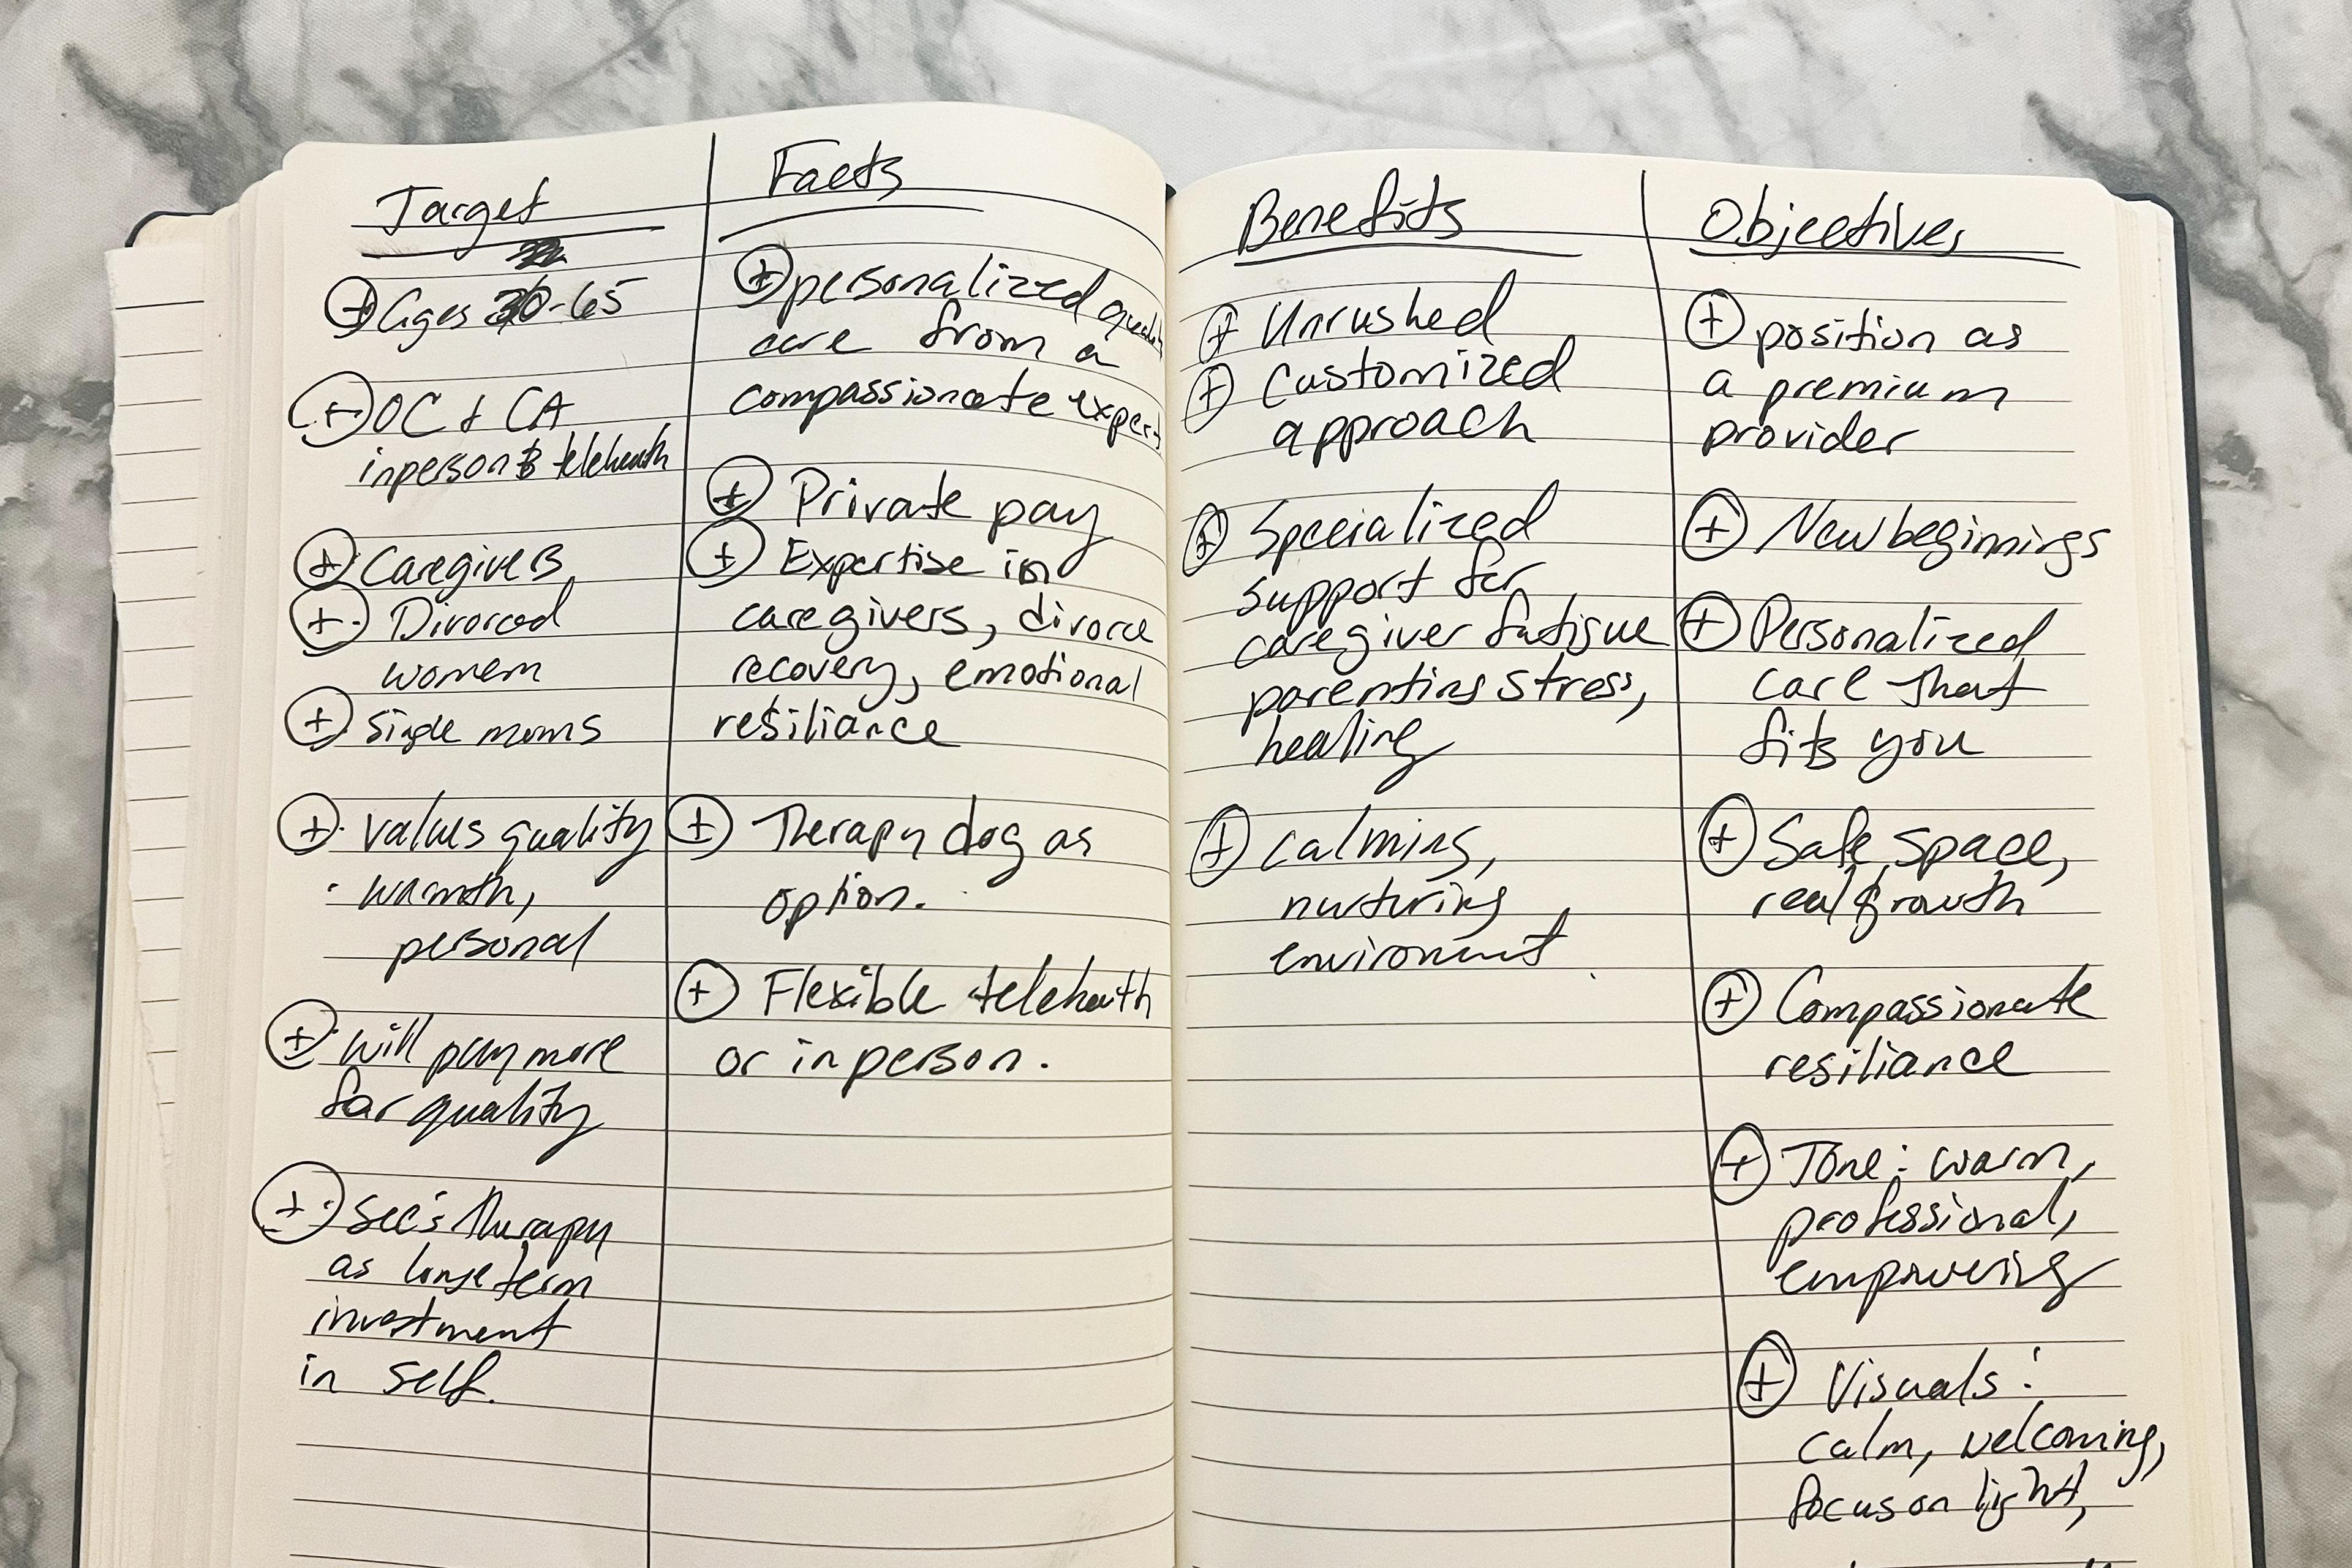 Target
⊕ Ages 30-65
⊕ OC & CA
inperson & telehealth
⊕ Caregivers
⊕ Divorced
women
⊕ Single moms
⊕ values quality
· warmth,
personal
⊕ will pay more
for quality
⊕ see's therapy
as long term
investment
in self.
Facts
⊕ personalized quality
care from a
compassionate expert
⊕ Private pay
⊕ Expertise in
caregivers, divorce
recovery, emotional
resiliance
⊕ Therapy dog as
option.
⊕ Flexible telehealth
or in person.
Benefits
⊕ Unrushed
⊕ Customized
approach
⊕ Specialized
support for
caregiver fatigue
parenting stress,
healing
⊕ calming,
nurturing
environment
Objectives
⊕ position as
a premium
provider
⊕ New beginnings
⊕ Personalized
care that
fits you
⊕ Safe space,
real growth
⊕ Compassionate
resiliance
⊕ Tone: warm,
professional,
empowering
⊕ Visuals:
calm, welcoming,
focus on light,